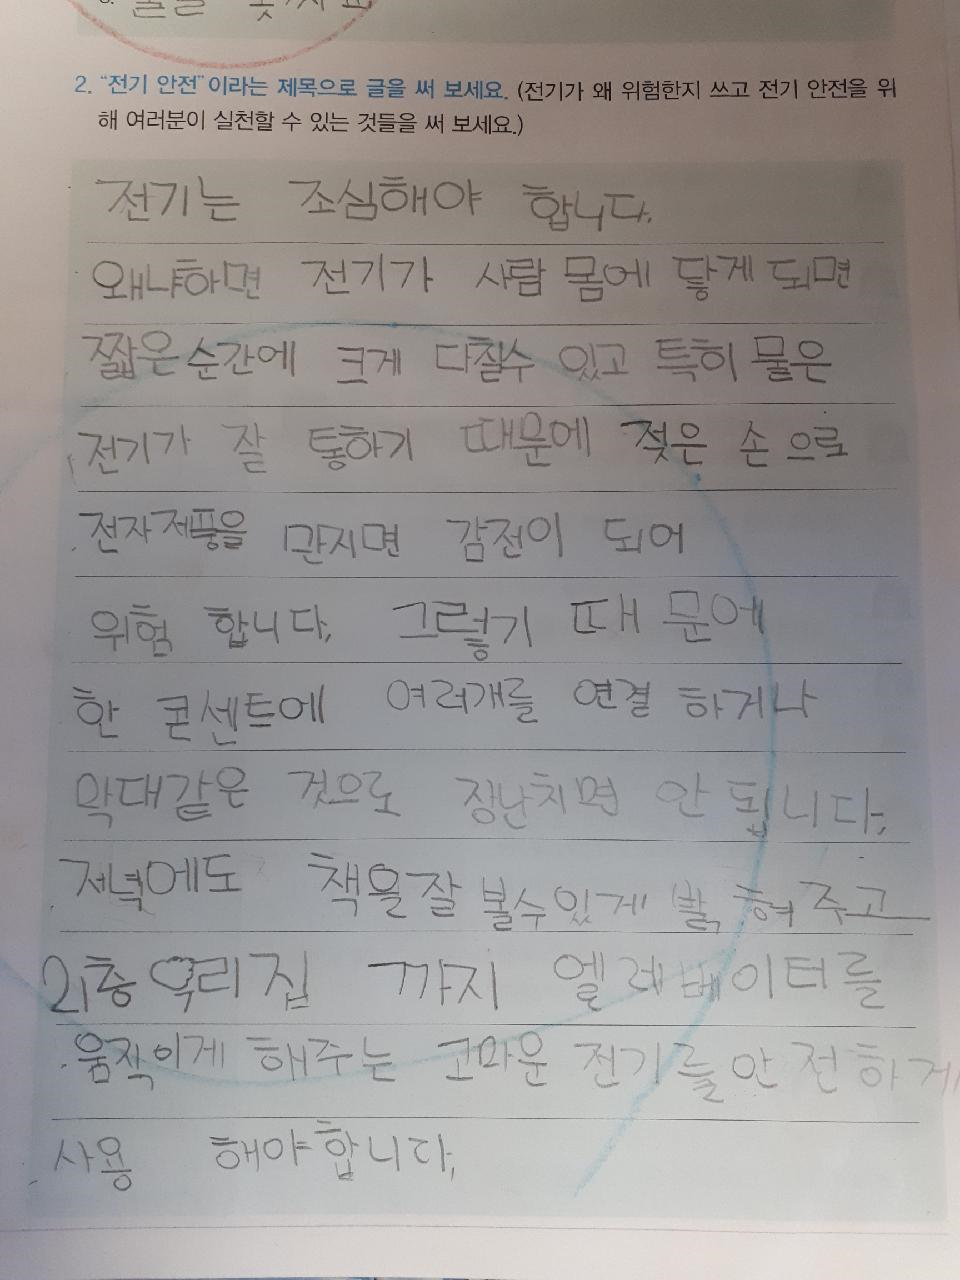 2. "전기 안전"이라는 제목으로 글을 써 보세요. (전기가 왜 위험한지 쓰고 전기 안전을 위
해 여러분이 실천할 수 있는 것들을 써 보세요.)
전기는 조심해야 합니다.
왜냐하면 전기가 사람 몸에 닿게 되면
짧은 순간에 크게 다칠수 있고 특히 물은
전기가 잘 통하기 때문에 젖은 손으로
전자제품을 만지면 감전이 되어
위험 합니다. 그렇기 때문에
한 콘센트에 여러개를 연결 하거나
막대같은 것으로 장난치면 안 됩니다.
저녁에도 책을잘 볼수있게 밝혀주고
21층 우리집 까지 엘레베이터를
움직이게 해주는 고마운 전기를 안전하게
사용 해야합니다.